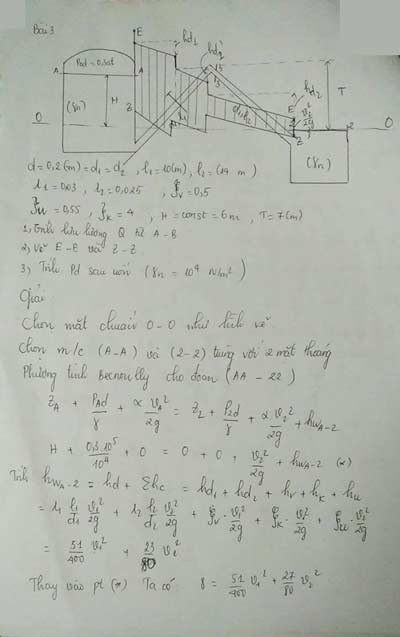 Bài 3
E hd1 hd2
Pod = 0,3at
A A
T
H
(γn)
Z
hd2
E
0 0
(γn)
d = 0,2 (m) = d1 = d2 , l1 = 10(m), l2 = (14 m)
λ1 = 0,03 , λ2 = 0,025 , ξv = 0,5
ξu = 0,55 , ξK = 4 , H = const = 6m , T = 7(m)
1, Tính lưu lượng Q từ A - B
2, Vẽ E-E và Z-Z.
3, Tính Pd sau uốn (γn = 10⁴ N/m²)
Giải
Chọn mặt chuẩn 0-0 như hình vẽ
Chọn m/c (A-A) và (2-2) trùng với 2 mặt thoáng
Phương tình Becnoulli cho đoạn (AA - 22)
ZA + PAd/γ + α vA²/2g = Z2 + P2d/γ + α v2²/2g + hwA-2
H + 0,3.10⁵/10⁴ + 0 = 0 + 0 + v2²/2g + hwA-2 (*)
Tính hwA-2 = hd + Σhc = hd1 + hd2 + hv + hK + hu
= λ1 l1/d1 v1²/2g + λ2 l2/d2 v2²/2g + ξv . v2²/2g + ξK . v2²/2g + ξu . v2²/2g
= 51/400 v1² + 23/80 v2²
Thay vào pt (*) Ta có 8 = 51/400 v1² + 27/80 v2²